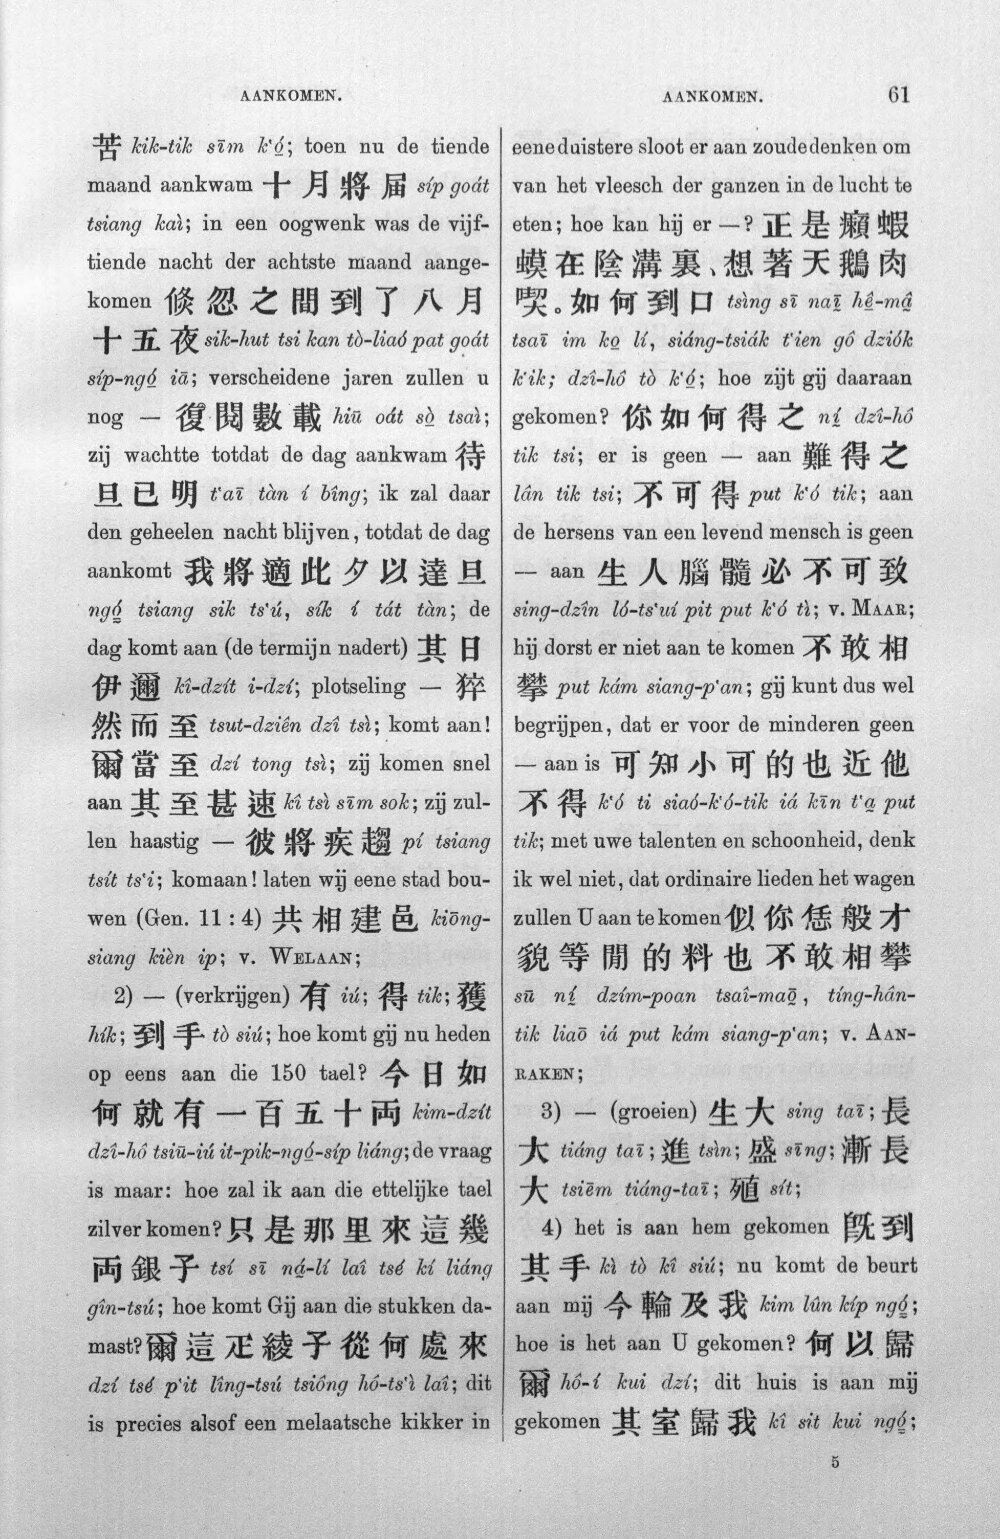 AANKOMEN.
AANKOMEN.
61
苦 kik-tik sīm k‘ó̤; toen nu de tiende
maand aankwam 十月將屆 síp goát
tsiang kaì; in een oogwenk was de vijf-
tiende nacht der achtste maand aange-
komen 倏忽之間到了八月
十五夜 sik-hut tsi kan tò-liaó pat goát
síp-ngó̤ iā; verscheidene jaren zullen u
nog — 復閱數載 hiū oát sò̤ tsaì;
zij wachtte totdat de dag aankwam 待
旦已明 t‘aī tàn í bîng; ik zal daar
den geheelen nacht blijven, totdat de dag
aankomt 我將適此夕以達旦
ngó̤ tsiang sik ts‘ú, sík í tát tàn; de
dag komt aan (de termijn nadert) 其日
伊邇 kî-dzít i-dzí; plotseling — 猝
然而至 tsut-dziên dzî tsì; komt aan!
爾當至 dzí tong tsì; zij komen snel
aan 其至甚速 kî tsì sīm sok; zij zul-
len haastig — 彼將疾趨 pí tsiang
tsít ts‘i; komaan! laten wij eene stad bou-
wen (Gen. 11 : 4) 共相建邑 kiōng-
siang kièn ip; v. WELAAN;
2) — (verkrijgen) 有 iú; 得 tik; 獲
hík; 到手 tò siú; hoe komt gij nu heden
op eens aan die 150 tael? 今日如
何就有一百五十両 kim-dzít
dzî-hô tsiū-iú it-pik-ngó̤-síp liáng; de vraag
is maar: hoe zal ik aan die ettelijke tael
zilver komen? 只是那里來這幾
両銀子 tsí sī ná̤-lí laî tsé kí liáng
gîn-tsú; hoe komt Gij aan die stukken da-
mast? 爾這疋綾子從何處來
dzí tsé p‘it lîng-tsú tsiông hô-ts‘ì laî; dit
is precies alsof een melaatsche kikker in
eene duistere sloot er aan zoude denken om
van het vleesch der ganzen in de lucht te
eten; hoe kan hij er —? 正是癩蝦
蟆在陰溝裏、想著天鵝肉
喫。如何到口 tsìng sī naī̤ hê̤-mâ̤
tsaī im ko̤ lí, siáng-tsiák t‘ien gô dziók
k‘ik; dzî-hô tò k‘ó̤; hoe zijt gij daaraan
gekomen? 你如何得之 ní̤ dzî-hô
tik tsi; er is geen — aan 難得之
lân tik tsi; 不可得 put k‘ó tik; aan
de hersens van een levend mensch is geen
— aan 生人腦髓必不可致
sing-dzîn ló-ts‘uí pit put k‘ó tì; v. MAAR;
hij dorst er niet aan te komen 不敢相
攀 put kám siang-p‘an; gij kunt dus wel
begrijpen, dat er voor de minderen geen
— aan is 可知小可的也近他
不得 k‘ó ti siaó-k‘ó-tik iá kīn t‘a̤ put
tik; met uwe talenten en schoonheid, denk
ik wel niet, dat ordinaire lieden het wagen
zullen U aan te komen 似你恁般才
貌等閒的料也不敢相攀
sū ní̤ dzím-poan tsaî-maō̤, tíng-hân-
tik liaō iá put kám siang-p‘an; v. AAN-
RAKEN;
3) — (groeien) 生大 sing taī; 長
大 tiáng taī; 進 tsìn; 盛 sīng; 漸長
大 tsiēm tiáng-taī; 殖 sít;
4) het is aan hem gekomen 旣到
其手 kì tò kî siú; nu komt de beurt
aan mij 今輪及我 kim lûn kíp ngó̤;
hoe is het aan U gekomen? 何以歸
爾 hô-í kui dzí; dit huis is aan mij
gekomen 其室歸我 kî sit kui ngó̤;
5